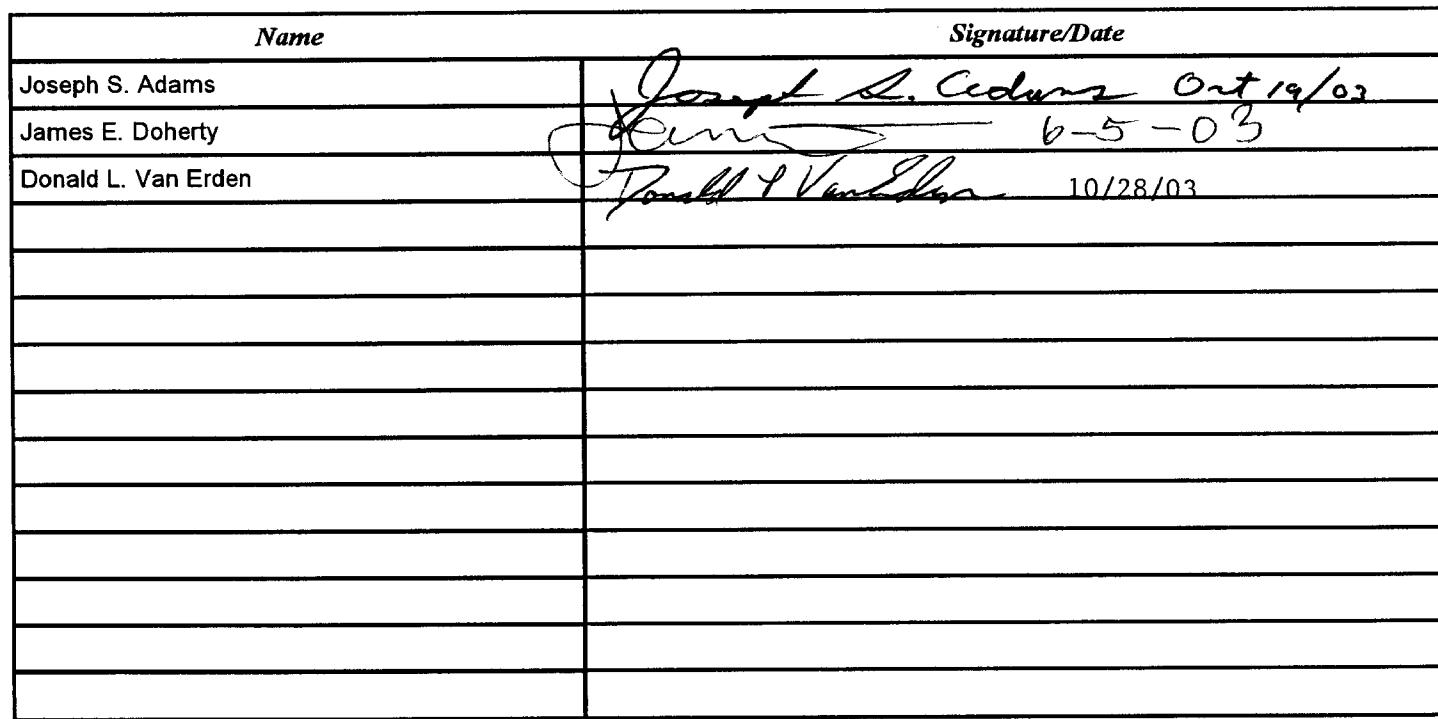 Name Signature/Date
Joseph S. Adams Joseph S. Adams Oct 19/03
James E. Doherty 6-5-03
Donald L. Van Erden Donald L Van Erden 10/28/03